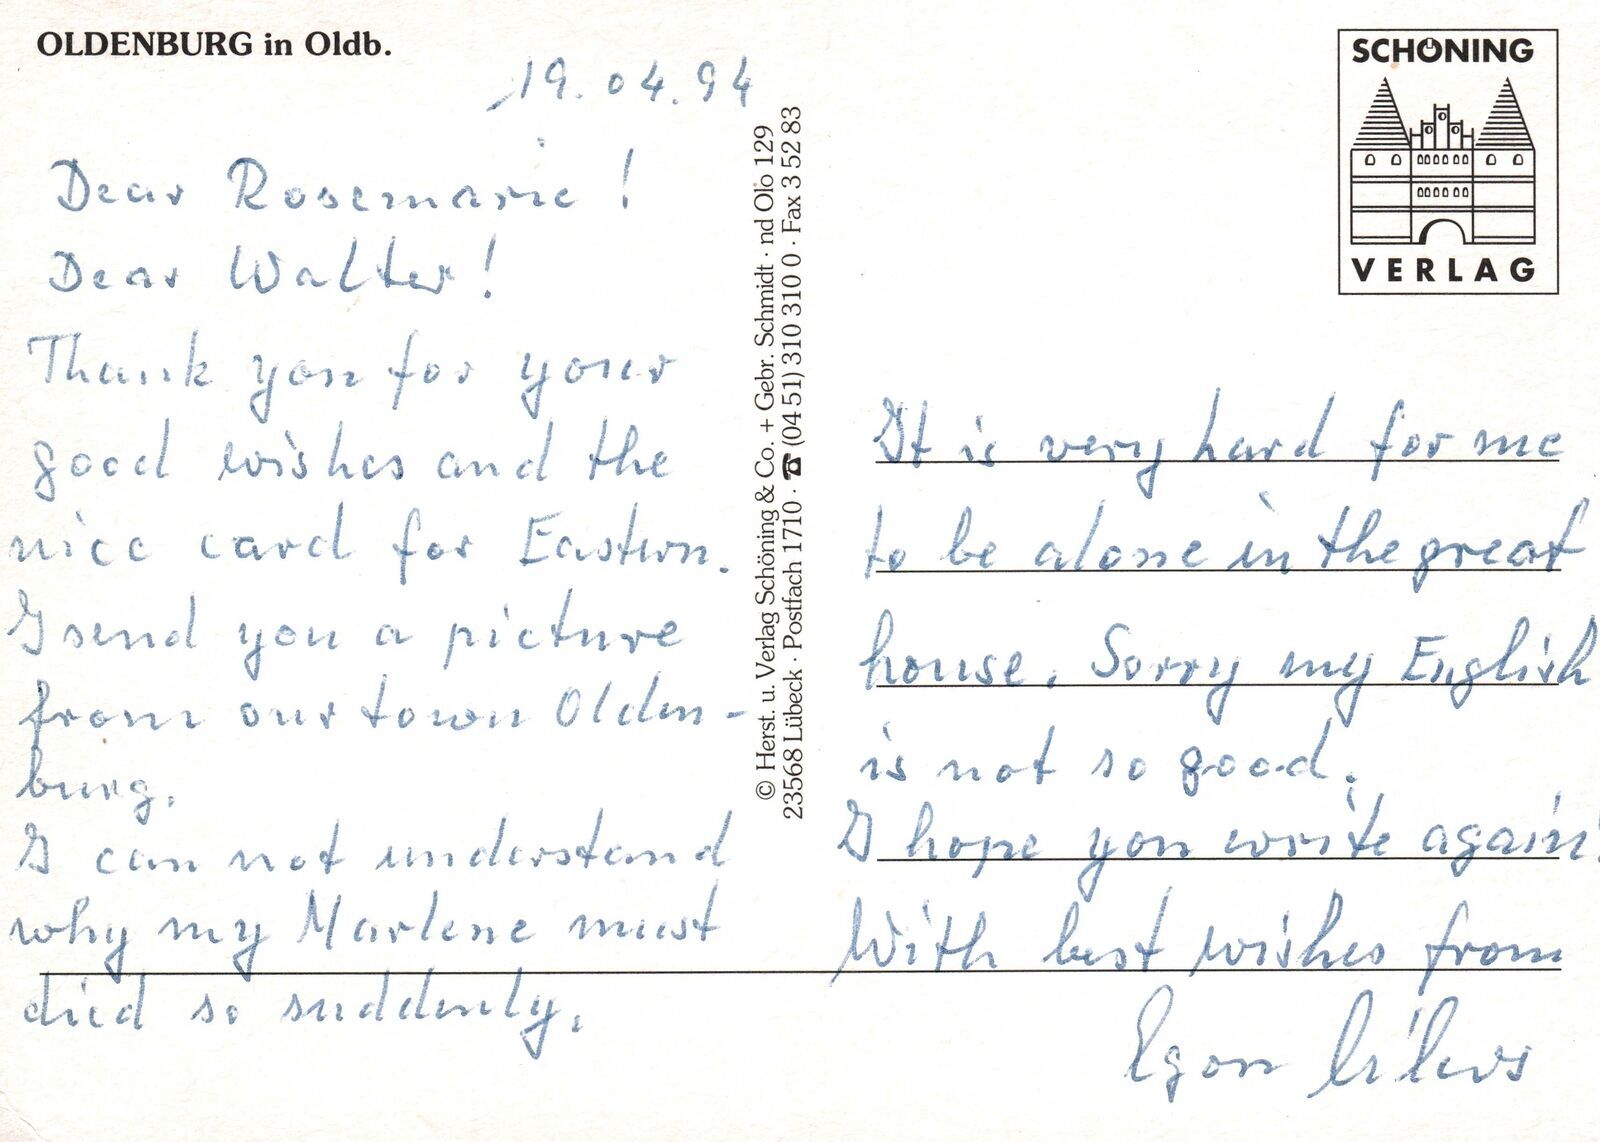 OLDENBURG in Oldb.
19.04.94
Dear Rosemarie!
Dear Walter!
Thank you for your
good wishes and the
nice card for Eastern.
I send you a picture
from our town Olden-
burg.
I can not understand
why my Marlene must
died so suddenly.
© Herst. u. Verlag Schöning & Co. + Gebr. Schmidt · nd Olo 129
23568 Lübeck · Postfach 1710 · ☎ (04 51) 310 310 0 · Fax 3 52 83
SCHÖNING
VERLAG
It is very hard for me
to be alone in the great
house. Sorry my English
is not so good.
I hope you write again!
With best wishes from
Egon